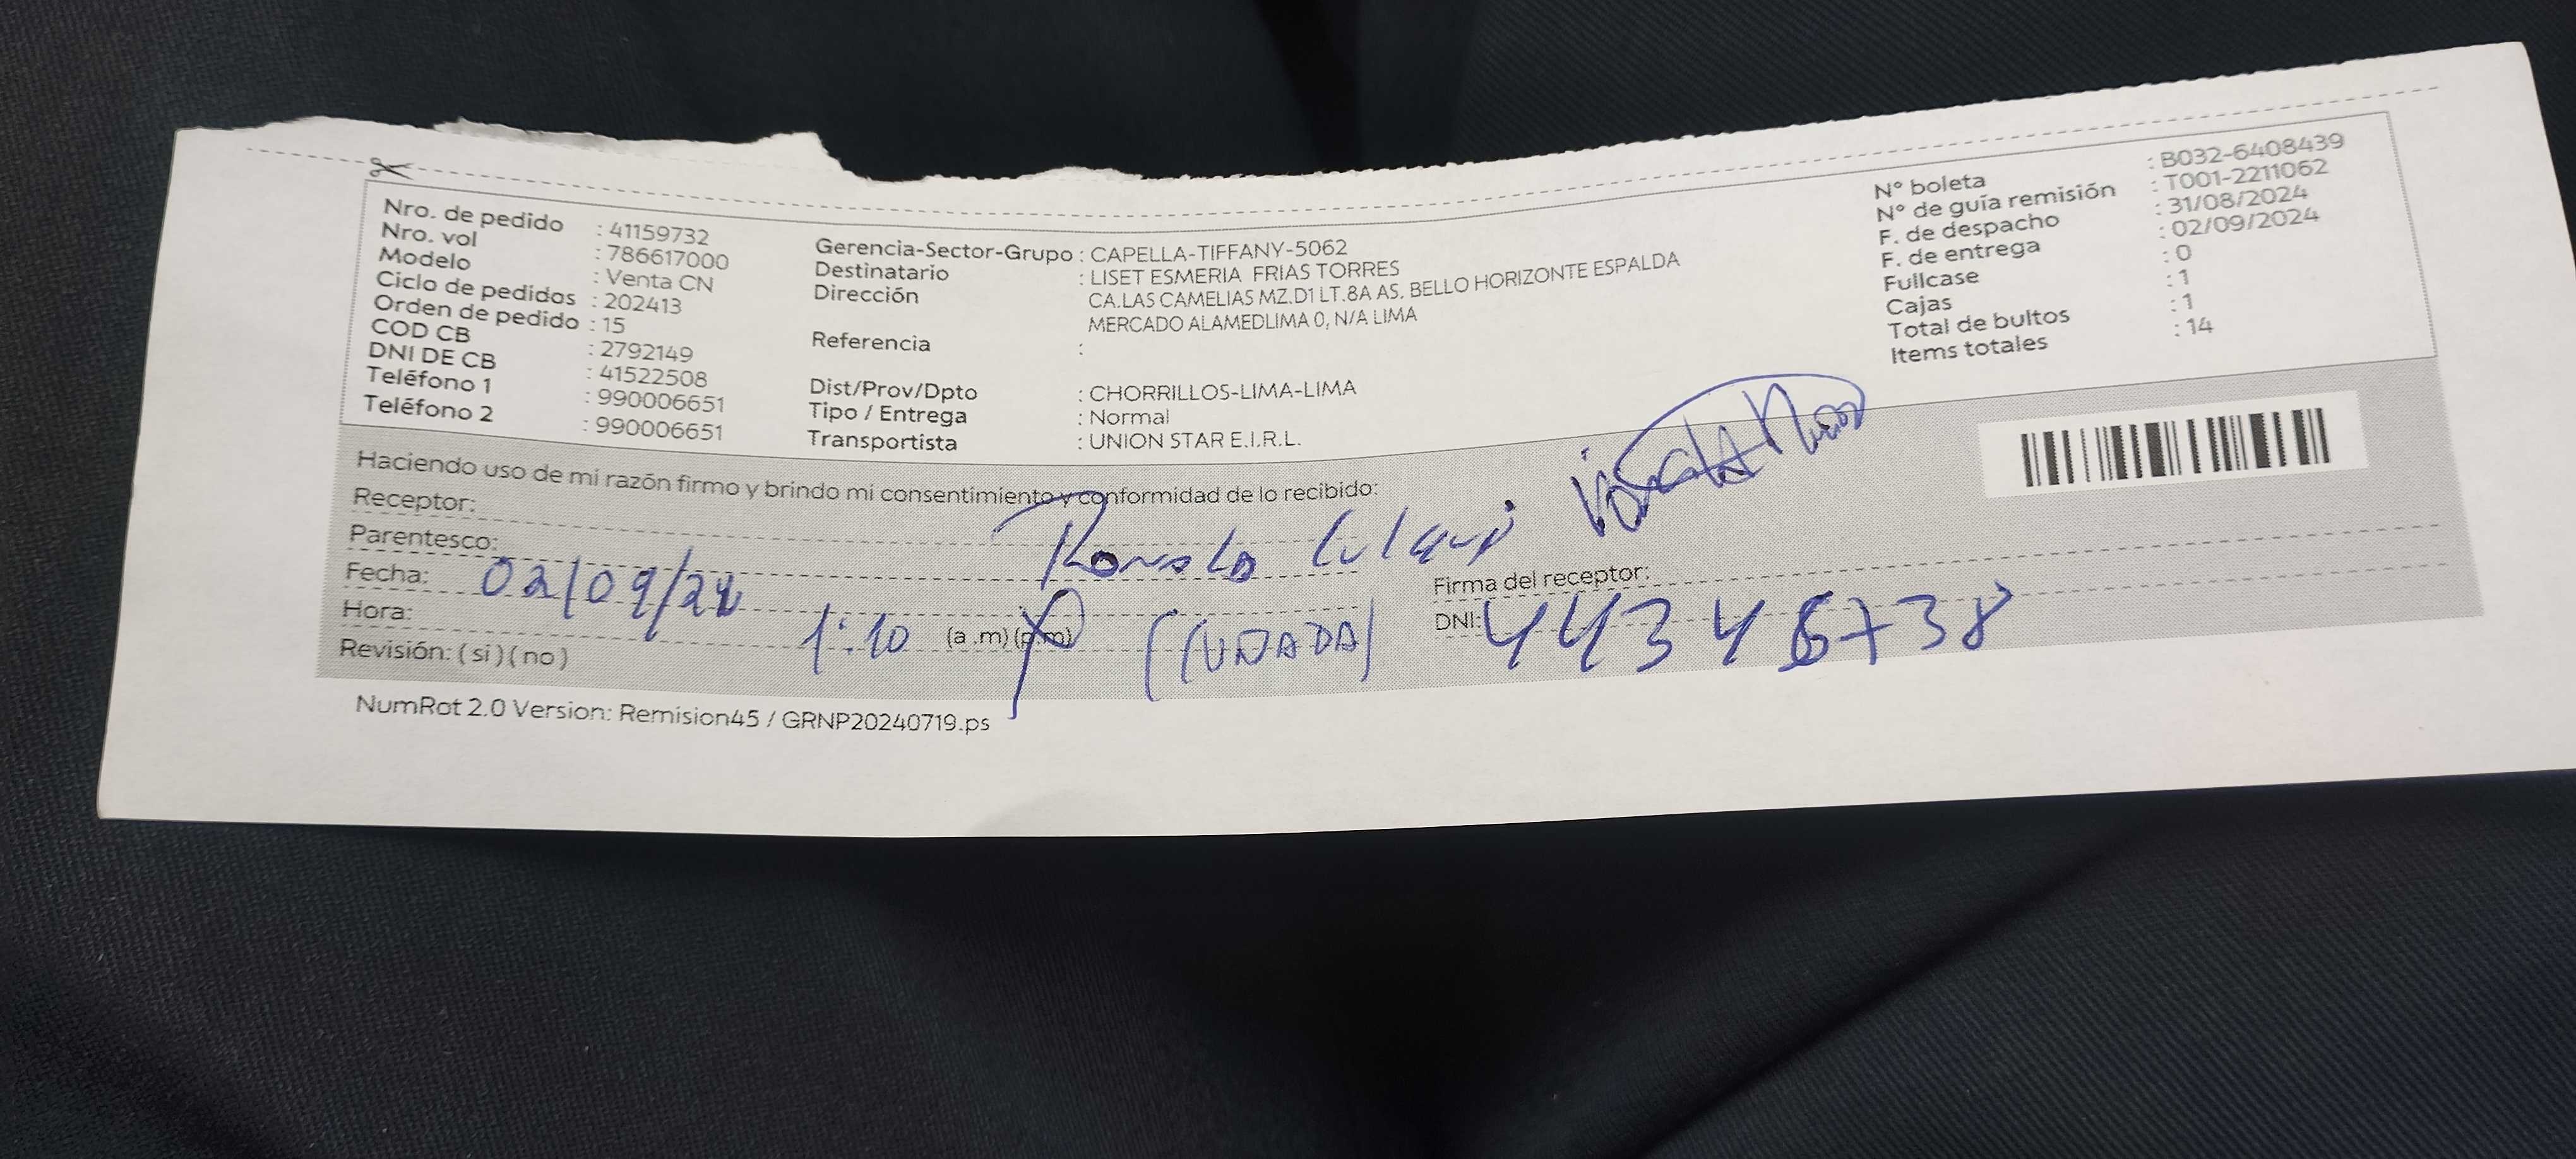 Nro. de pedido : 41159732
Nro. vol : 786617000
Modelo : Venta CN
Ciclo de pedidos : 202413
Orden de pedido : 15
COD CB : 2792149
DNI DE CB : 41522508
Teléfono 1 : 990006651
Teléfono 2 : 990006651
Gerencia-Sector-Grupo : CAPELLA-TIFFANY-5062
Destinatario : LISET ESMERIA FRIAS TORRES
Dirección CA.LAS CAMELIAS MZ.D1 LT.8A AS. BELLO HORIZONTE ESPALDA
MERCADO ALAMEDLIMA 0, N/A LIMA
Referencia :
Dist/Prov/Dpto : CHORRILLOS-LIMA-LIMA
Tipo / Entrega : Normal
Transportista : UNION STAR E.I.R.L.
N° boleta : B032-6408439
N° de guía remisión : T001-2211062
F. de despacho : 31/08/2024
F. de entrega : 02/09/2024
Fullcase : 0
Cajas : 1
Total de bultos : 1
Items totales : 14
Haciendo uso de mi razón firmo y brindo mi consentimiento y conformidad de lo recibido:
Receptor:
Parentesco:
Fecha: 02/09/24
Hora: 1:10 (a .m) (p.m) (CUÑADA)
Revisión: ( si ) ( no )
Firma del receptor:
DNI:
NumRot 2.0 Version: Remision45 / GRNP20240719.ps